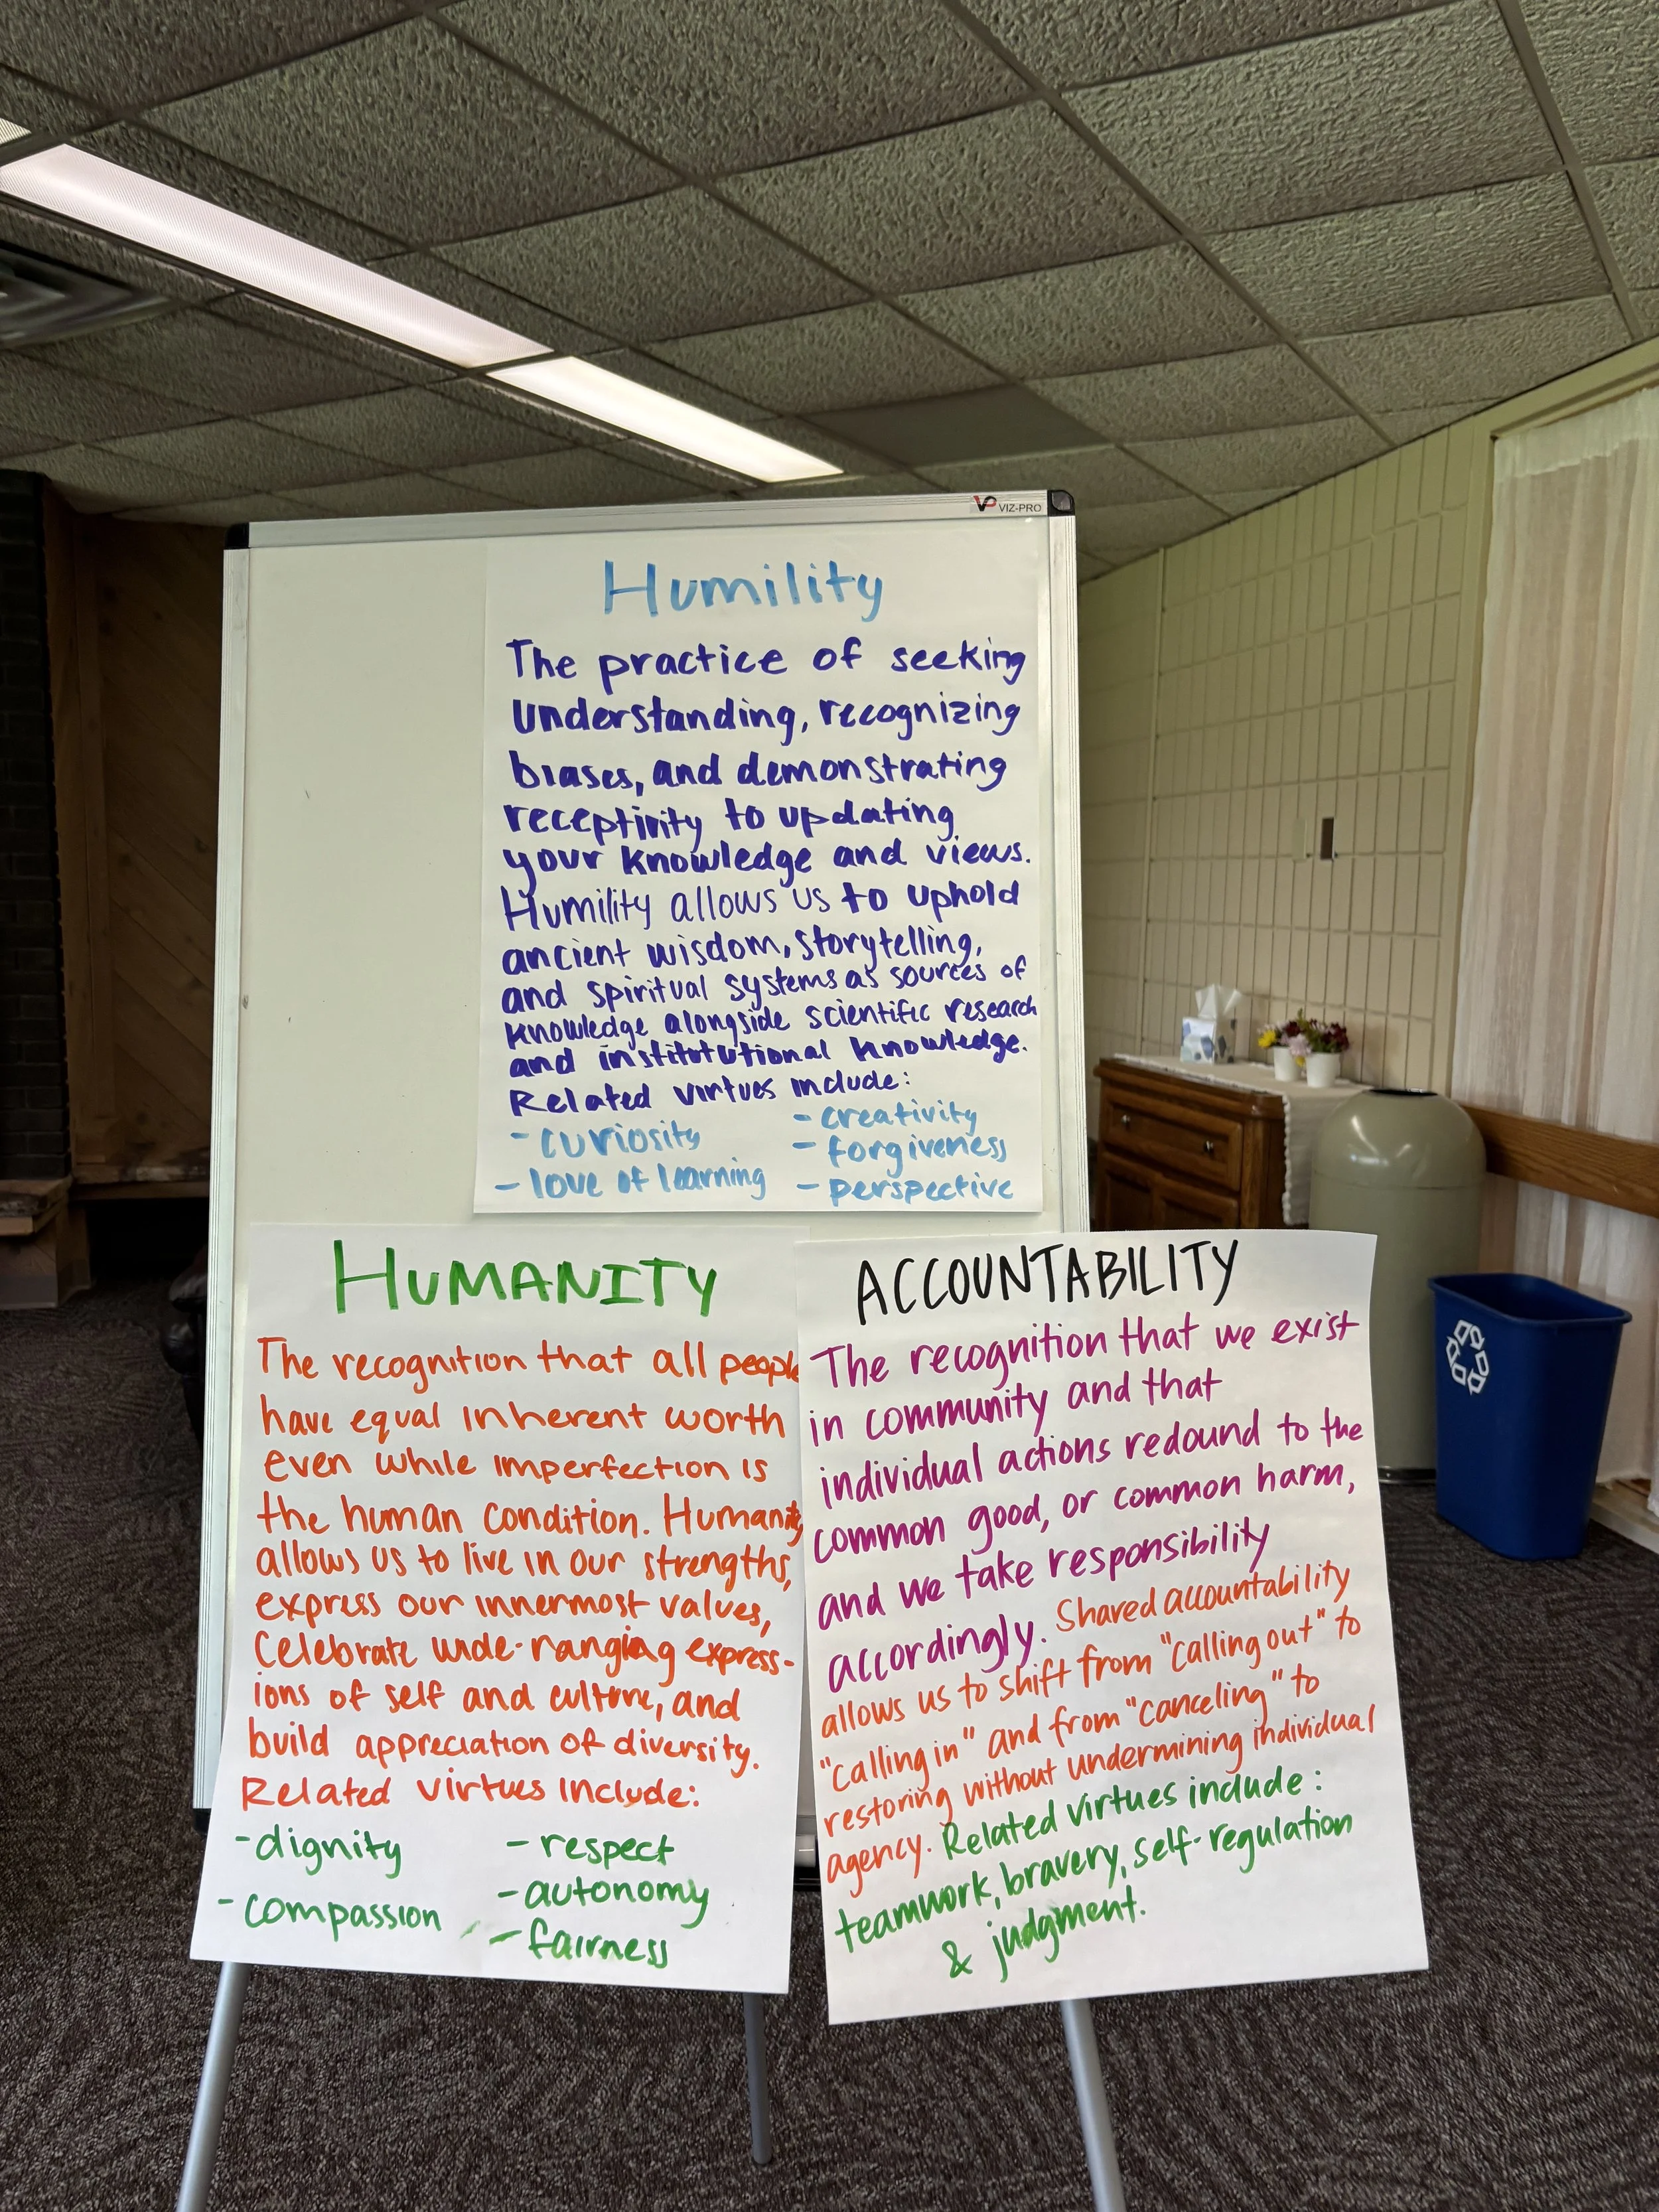 VP VIZ-PRO
Humility
The practice of seeking
understanding, recognizing
biases, and demonstrating
receptivity to updating
your knowledge and views.
Humility allows us to uphold
ancient wisdom, storytelling,
and spiritual systems as sources of
knowledge alongside scientific research
and institutional knowledge.
Related virtues include:
- curiosity
- love of learning
- creativity
- forgiveness
- perspective
HUMANITY
The recognition that all people
have equal inherent worth
even while imperfection is
the human condition. Humanity
allows us to live in our strengths,
express our innermost values,
Celebrate wide-ranging express-
ions of self and culture, and
build appreciation of diversity.
Related virtues include:
- dignity
- compassion
- respect
- autonomy
- fairness
ACCOUNTABILITY
The recognition that we exist
in community and that
individual actions redound to the
common good, or common harm,
and we take responsibility
accordingly. Shared accountability
allows us to shift from "calling out" to
"calling in" and from "canceling" to
restoring without undermining individual
agency. Related virtues include:
teamwork, bravery, self-regulation
& judgment.